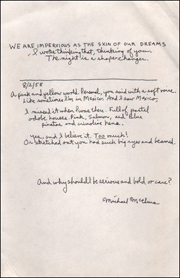 WE ARE IMPERVIOUS AS THE SKIN OF OUR DREAMS
I wrote thinking that, thinking of you.
The night is a shape changer.
8/2/58
A pink and yellow world. Personal, you said with a soft voice.
Like sometimes live in Mexico. And I saw Mexico,
I missed it when I was there. Full of
adobe houses. Pink, Salmon, and blue
piñatas and
yes, and I believe it. Too much!
Or stretched out you had such big eyes and
And why should I be serious and bold, or care?
Michael McClure